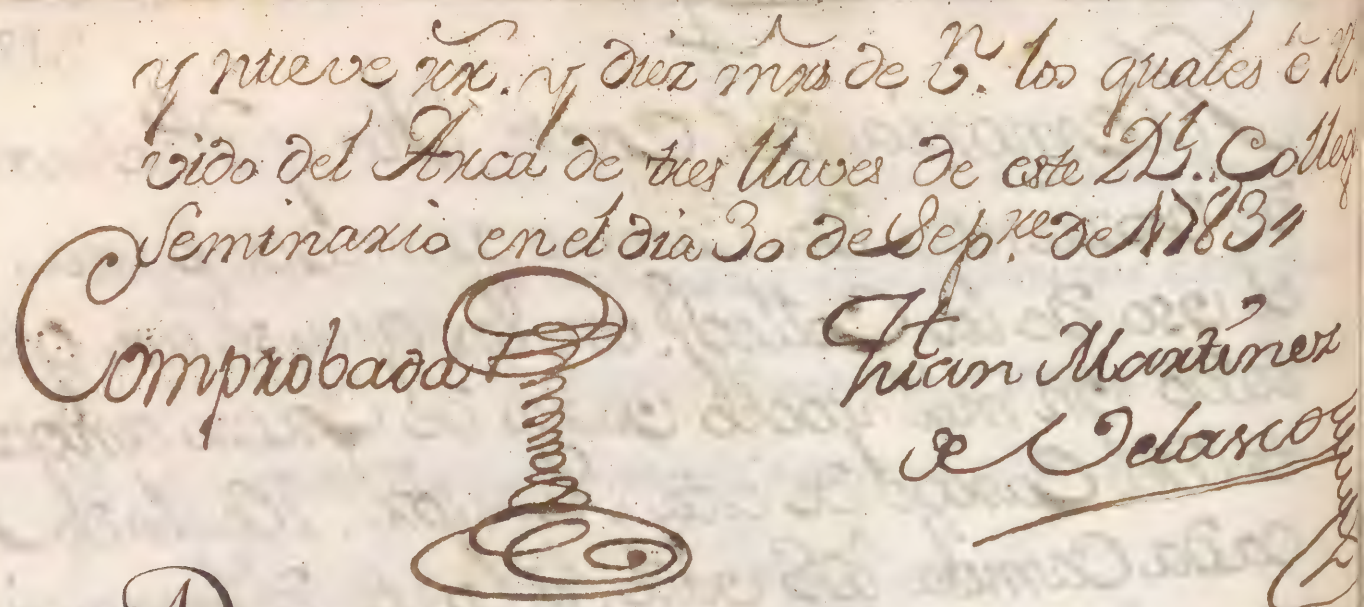 y nueve rrˢ. y diez mrs de vⁿ. los quales é re
vido del Arca de tres llaves de este Rl. Colleg
Seminario en el dia 30 de Sepre de 1783
Comprobada
Juan Martinez
de Velasco